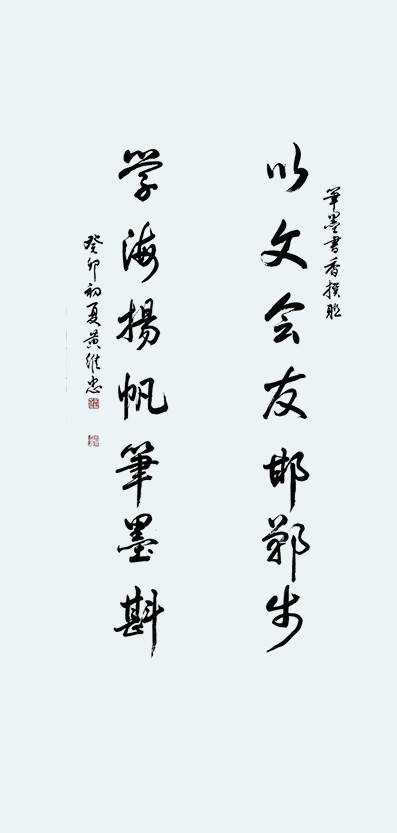 筆墨書香撰聯
以文会友邯鄲步
学海揚帆筆墨斟
癸卯初夏黄維忠